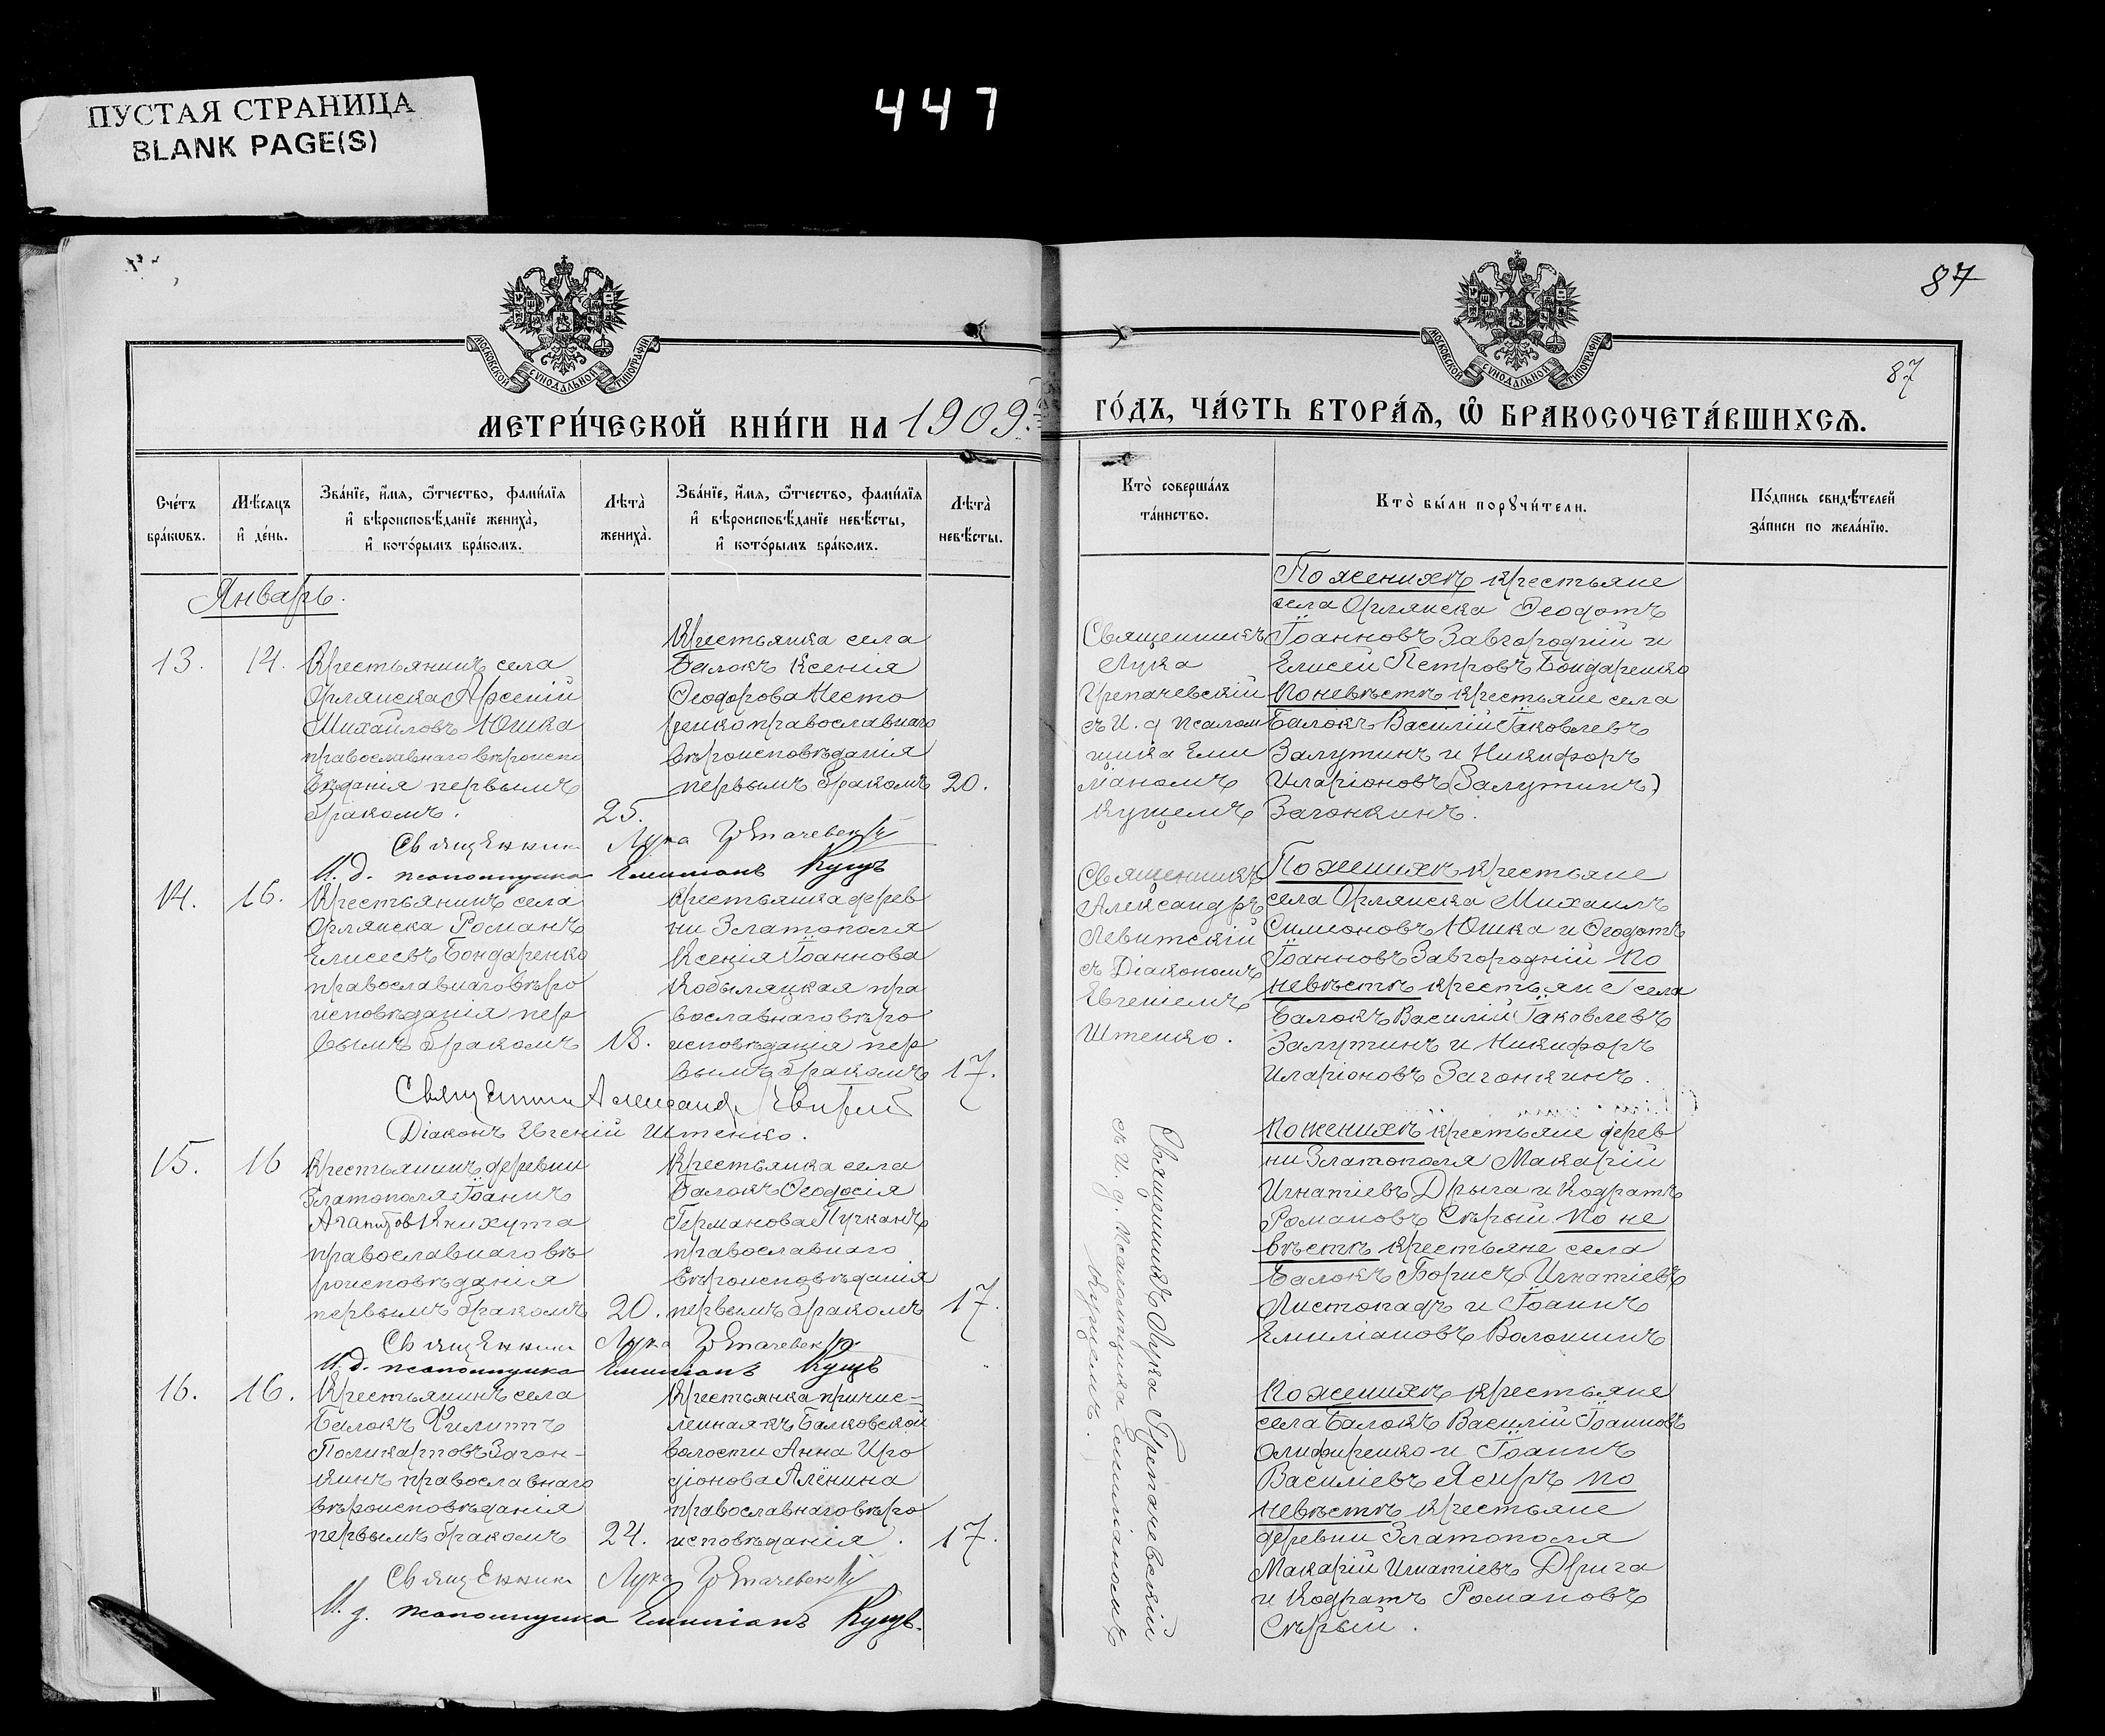 ПУСТАЯ СТРАНИЦА
BLANK PAGE(S)
447
87
87
МОСКОВСКОЙ СѴНОДАЛЬНОЙ ТИПОГРАФІИ
МОСКОВСКОЙ СѴНОДАЛЬНОЙ ТИПОГРАФІИ
МЕТРИ́ЧЕСКОЙ КНИ́ГИ НА 1909
ГО́ДЪ, ЧА́СТЬ ВТОРА́Я, Ѡ҆ БРАКОСОЧЕТА́ВШИХСЯ.
Сче́тъ
бра́кѡвъ.
Мѣ́сяцъ
и҆ де́нь.
Зва́нїе, и҆́мя, ѻ҆́тчество, фами́лїя
и҆ вѣроисповѣ́данїе жениха̀,
и҆ кото́рымъ бра́комъ.
Лѣта̀
жениха̀.
Зва́нїе, и҆́мя, ѻ҆́тчество, фами́лїя
и҆ вѣроисповѣ́данїе невѣ́сты,
и҆ кото́рымъ бра́комъ.
Лѣта̀
невѣ́сты.
Кто̀ соверша́лъ
та́инство.
Кто̀ бы́ли порꙋчи́тели.
По́дпись свидѣ́телей
за́писи по жела́нїю.
Январь.
13.
14.
Крестьянинъ села
Орлянска Арсеній
Михайловъ Юшка
православнаго вѣроиспо
вѣданія первымъ
бракомъ.
25.
Крестьянка села
Балокъ Ксенія
Ѳеодорова Несто
ренко православнаго
вѣроисповѣданія
первымъ бракомъ
20.
Священникъ
Лука
Грепачевскій
съ И. д псалом
щика Еми
ліаномъ
Кущемъ
По женихѣ крестьяне
села Орлянска Ѳеодотъ
Іоанновъ Завгородній и
Елисей Петровъ Бондаренко
По невѣстѣ крестьяне села
Балокъ Василій Іаковлевъ
Залутинъ и Никифоръ
Иларіоновъ (Залутинъ)
Загонкинъ.
Священникъ Лука Грепачевскій
И. д. псаломщика Емиліанъ Кущъ
14.
16.
Крестьянинъ села
Орлянска Романъ
Елисеевъ Бондаренко
православнаго вѣро
исповѣданія пер
вымъ бракомъ
18.
Крестьянка дерев
ни Златополя
Ксенія Іоаннова
Кобыляцкая пра
вославнаго вѣро
исповѣданія пер
вымъ бракомъ
17.
Священникъ
Александръ
Левитскій
съ Діакономъ
Евгеніемъ
Штенко.
По женихѣ крестьяне
села Орлянска Михаилъ
Симеоновъ Юшка и Ѳеодотъ
Іоанновъ Завгородній По
невѣстѣ крестьяне села
Балокъ Василій Іаковлевъ
Залутинъ и Никифоръ
Иларіоновъ Загонкинъ.
Священникъ Александръ Левитскій
Діаконъ Евгеній Штенко.
15.
16
Крестьянинъ деревни
Златополя Іоаннъ
Агапитовъ Книхута
православнаго вѣ
роисповѣданія
первымъ бракомъ
20.
Крестьянка села
Балокъ Ѳеодосія
Германова Пучканъ
православнаго
вѣроисповѣданія
первымъ бракомъ
17.
Священникъ Лука Грепачевскій
съ И. д. Псаломщика Емиліаномъ
Кущемъ.
По женихѣ крестьяне дерев
ни Златополя Макарій
Игнатіевъ Дрыга и Кодратъ
Романовъ Сѣрый. По не
вѣстѣ крестьяне села
Балокъ Борисъ Игнатіевъ
Листопадъ и Іоаннъ
Емиліановъ Волошинъ
Священникъ Лука Грепачевскій
И. д. псаломщика Емиліанъ Кущъ
16.
16.
Крестьянинъ села
Балокъ Филиппъ
Поликарповъ Загон-
кинъ православнаго
вѣроисповѣданія
первымъ бракомъ
24.
Крестьянка причис=
ленная къ Балковской
волости Анна Иро
діонова Алёнина
православнаго вѣро
исповѣданія.
17.
По женихѣ крестьяне
села Балокъ Василій Іоанновъ
Олифиренко и Іоаннъ
Василіевъ Ясиръ По
невѣстѣ крестьяне
деревни Златополя
Макарій Игнатіевъ Дрига
и Кодратъ Романовъ
Сѣрый.
Священникъ Лука Грепачевскій
И. д. псаломщика Емиліанъ Кущъ.